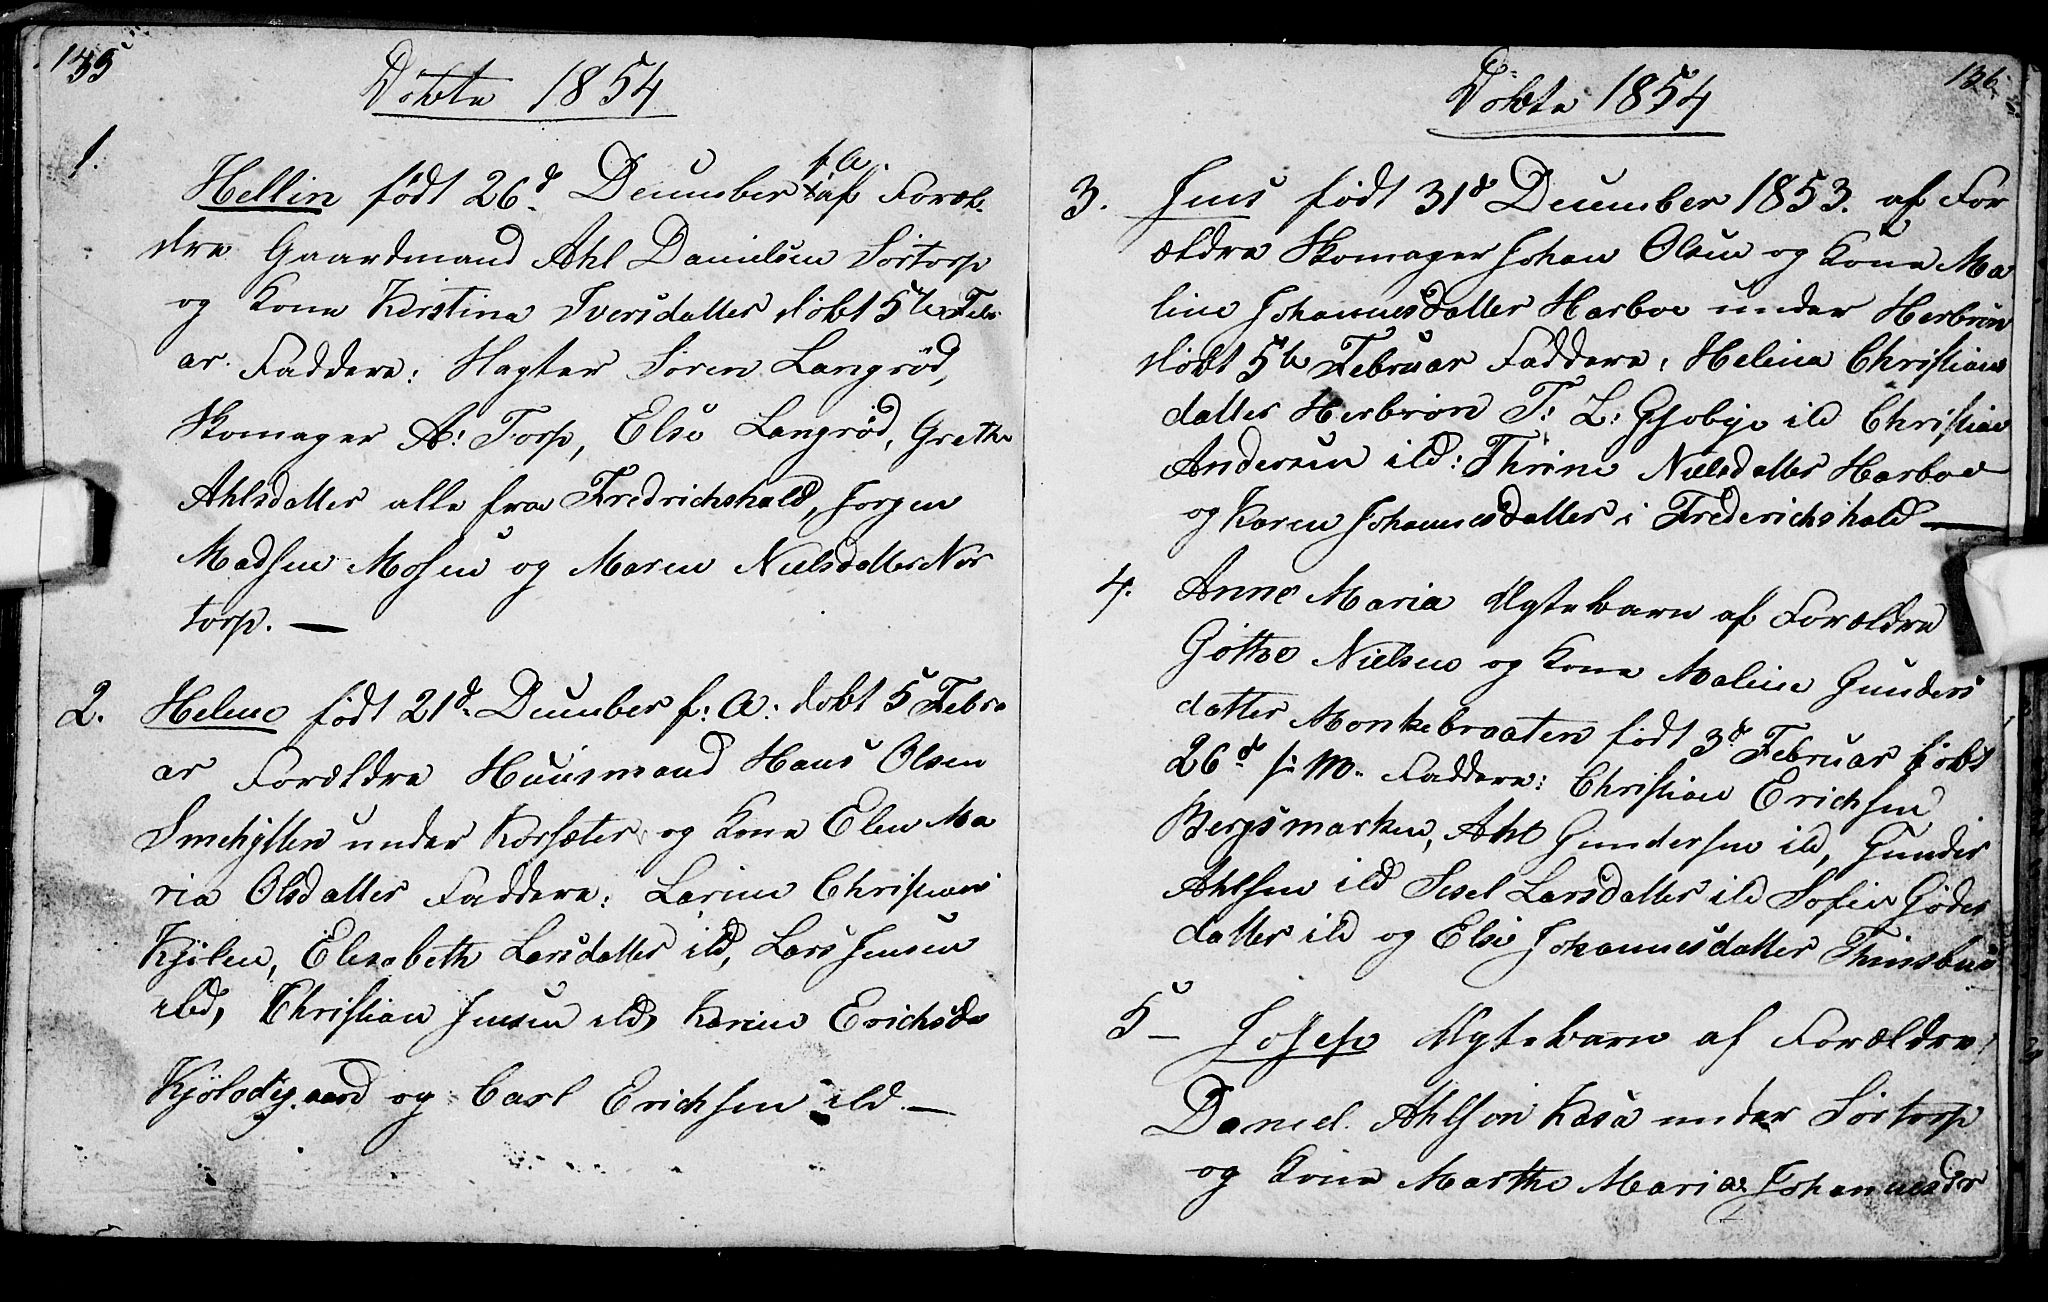 135
Döbte 1854
1.
f. A.
Hellin födt 26d December af Foræl-
dre Gaardmand Ahl Danielsen Sörtorp
og Kone Kirstine Iversdatter döbt 5te Febr.
ar. Faddere: Slagter Sören Langröd,
Skomager A: Torp, Else Langröd, Grethe
Ahlsdatter alle fra Fredrichshald, Jörgen
Madsen Mosen og Maren Nielsdatter Nor
torp. —
2. Helene födt 21d December f: A: döbt 5 Febru
ar Forældre Huusmand Hans Olsen
Smehytten under Korsæter og Kone Elen Ma
ria Olsdatter Faddere: Larine Christians
Kjölen, Elisabeth Larsdatter ild, Lars Jensen
ild, Christian Jensen ild, Karine Erichsda
Kjölödegaard og Carl Erichsen ild. —
136
Döbte 1854
3. Jens födt 31d December 1853. af For
ældre Skomager Johan Olsen og Kone Ma
line Johannesdatter Harboe under Herbrön
döbt 5te Februar Faddere: Helene Christians
datter Herbrön T: L: Gjöbye ild Christian
Andersen ild: Thrine Nielsdatter Harboe
og Karen Johannesdatter i Frederichshald —
4. Anne Maria Ægtebarn af Forældre
Göthe Nielsen og Kone Maline Gunders
datter Monkebraaten födt 3d Februar döbt
26d s: M. Faddere: Christian Erichsen
Bergsmarken, Ahl Gundersen ild, Gunder
Ahlsen ild Sisel Larsdatter ild Sofie Göder
datter ild og Else Johannesdatter
5 — Josep Ægtebarn af Forældre
Daniel Ahlsön Kasa under Sörtorp
og Kone Marthe Maria Johannesdr